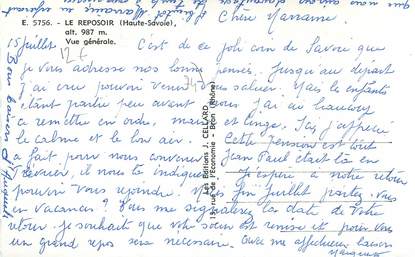 E. 5756. - LE REPOSOIR (Haute-Savoie),
alt. 987 m.
Vue générale.
Les Editions J. CELLARD
19, rue de l'Economie - Bron (Rhône)
15 juillet
Chère Marraine
C'est de ce joli coin de Savoie que
je vous adresse nos bonnes pensées. Jusqu'au départ
j'ai cru pouvoir venir vous saluer. Mais les enfants
étant partis peu avant nous j'ai eu beaucoup
à remettre en ordre, maison et linge. Ici j'apprécie
le calme et le bon air. Cette pension est tout
à fait pour nous convenir. Jean Paul était là en
février, il nous l'a indiquée. J'espère à notre retour
pouvoir vous rejoindre. Fin juillet partez-vous
en vacances? Vous me signalerez la date de votre
retour. Je souhaite que votre soeur est remise et pour vous
un grand repos sera nécessaire. Avec mes affectueux baisers
Marguerite
Bons baisers d'